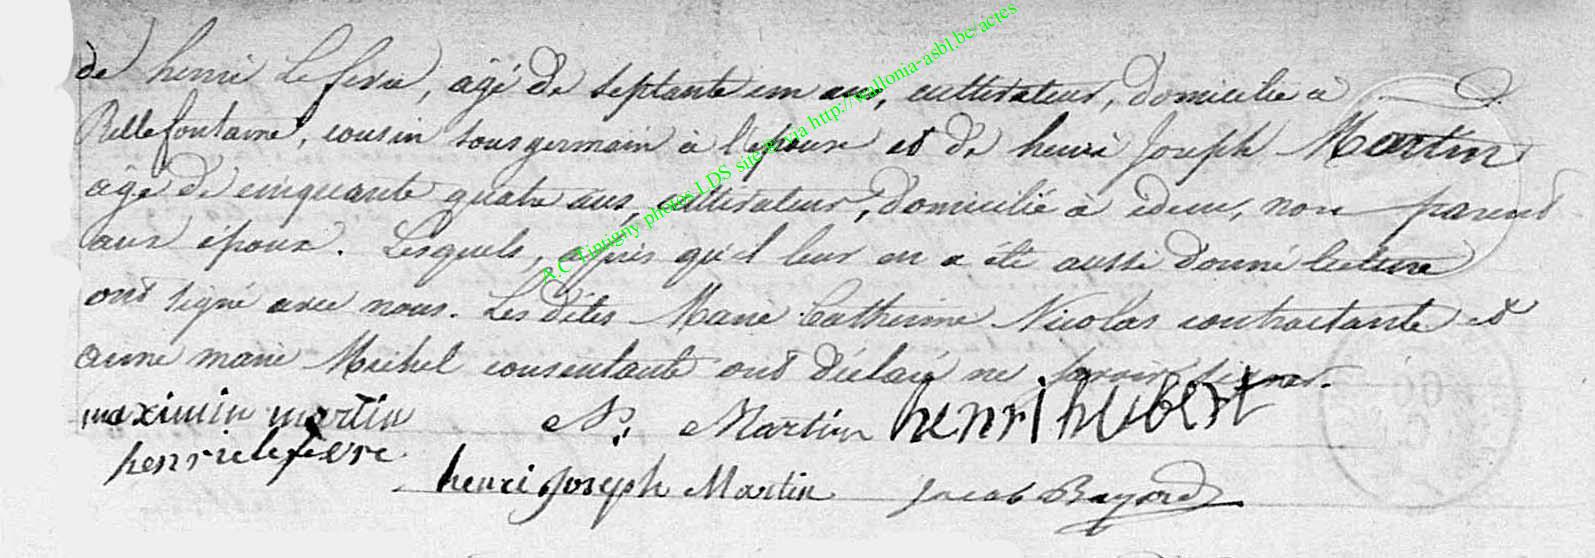 de henri Lefevre, agé de septante un ans, cultivateur, domicilié à
Bellefontaine, cousin sous germain à l'épouse et de henri Joseph Martin
agé de cinquante quatre ans, cultivateur, domicilié à idem, non parent
aux époux. Lesquels, après qu'il leur en a été aussi donné lecture
ont signé avec nous. Les dites Marie Catherine Nicolas contractante et
anne marie Michel consentante ont déclaré ne savoir signer.
maximin martin N. Martin henri hubert
henri lefevre
henri Joseph Martin Jacob Bayard
A.C Tintigny photos LDS sur via http://wallonia-asbl.be/actes